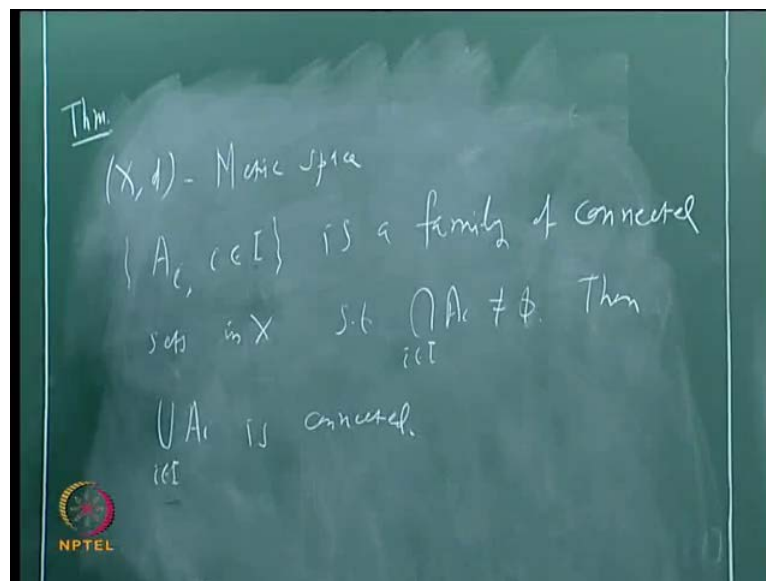 Thm.
(X, d) - Metric space
{ A_i, i∈I } is a family of connected
sets in X s.t. ⋂ A_i ≠ ϕ. Then
i∈I
⋃ A_i is connected.
i∈I
NPTEL